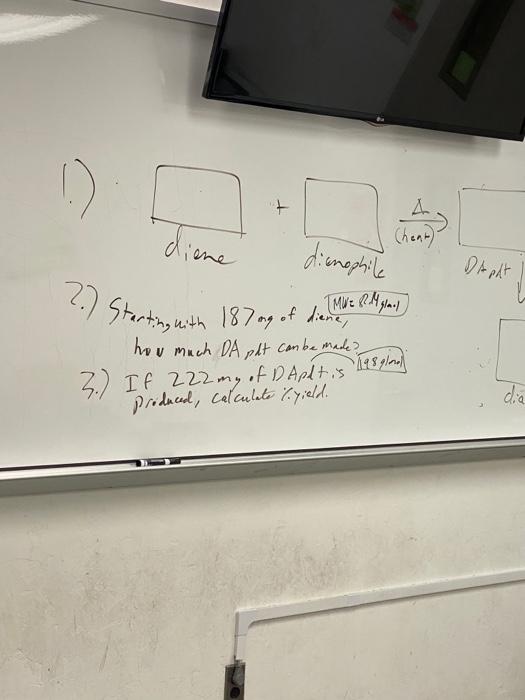 1.)
+
Δ
(heat)
diene
dienophile
DA pdt
2.) Starting with 187 mg of diene,
how much DA pdt can be made?
198 g/mol
3.) If 222 mg of DA pdt is
produced, calculate % yield.
die
LG